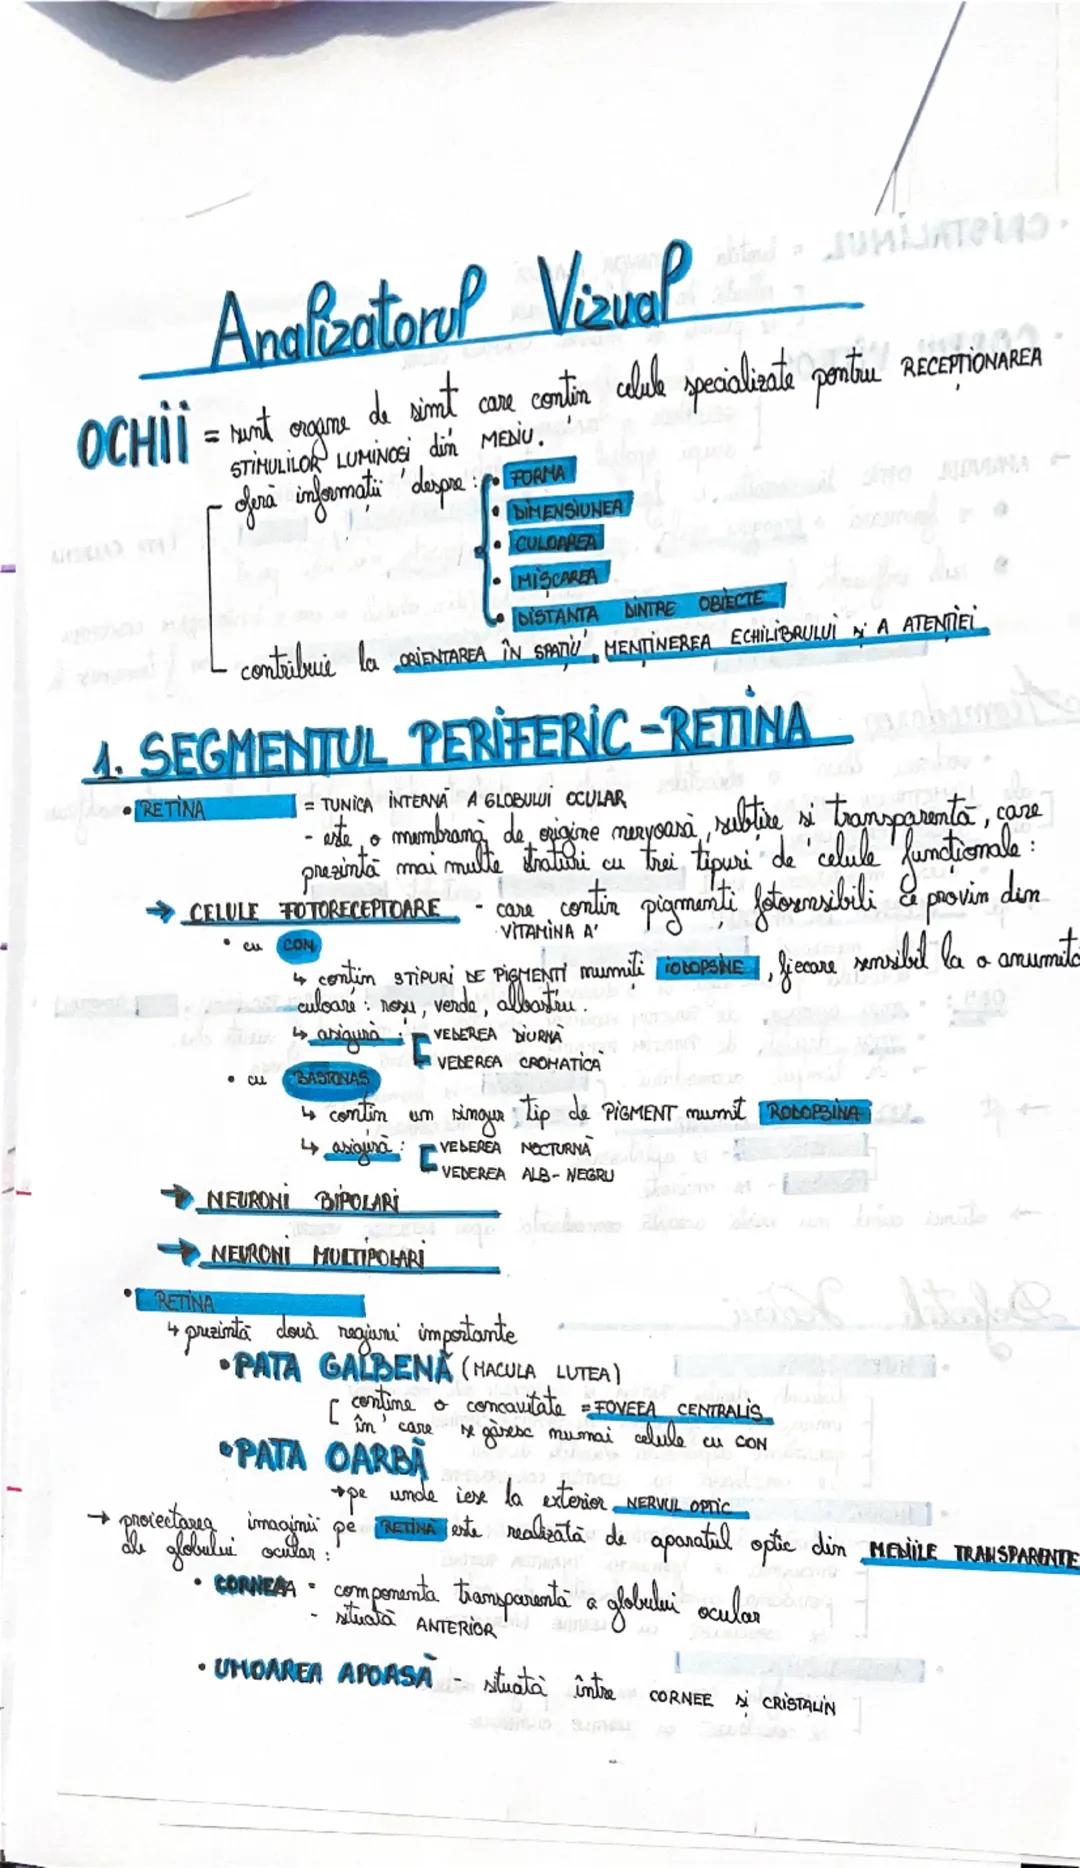 Analizatorul Vizual
OCHII = sunt organe de simt care contin celule specializate pentru RECEPȚIONAREA
STIMULILOR LUMINOSI din MEDIU.
oferă informații despre :
• FORMA
• DIMENSIUNEA
• CULOAREA
• MIȘCAREA
• DISTANTA DINTRE OBIECTE
contribuie la ORIENTAREA ÎN SPAȚIU, MENȚINEREA ECHILIBRULUI și A ATENȚIEI
1. SEGMENTUL PERIFERIC - RETINA
• RETINA = TUNICA INTERNĂ A GLOBULUI OCULAR
- este o membrană de origine nervoasă, subțire si transparentă, care
prezintă mai multe straturi cu trei tipuri de celule funcționale :
→ CELULE FOTORECEPTOARE - care contin pigmenți fotosensibili ce provin din
VITAMINA A
• cu CON
↳ contin 3 TIPURI DE PIGMENTI numiti IODOPSINE, fiecare sensibil la o anumită
culoare : roșu, verde, albastru.
↳ asigură : VEDEREA DIURNA
VEDEREA CROMATICĂ
• cu BASTONAS
↳ contin un singur tip de PIGMENT numit RODOPSINA
↳ asigură : VEDEREA NOCTURNĂ
VEDEREA ALB-NEGRU
→ NEURONI BIPOLARI
→ NEURONI MULTIPOLARI
• RETINA
↳ prezintă două regiuni importante
• PATA GALBENĂ (MACULA LUTEA)
contine o concavitate = FOVEEA CENTRALIS
în care se găsesc numai celule cu CON
• PATA OARBĂ
→ pe unde iese la exterior NERVUL OPTIC
→ proiectarea imaginii pe RETINĂ este realizată de aparatul optic din MEDIILE TRANSPARENTE
ale globului ocular :
• CORNEEA = componenta transparentă a globului ocular
- situată ANTERIOR
• UMOAREA APOASĂ - situată între CORNEE și CRISTALIN